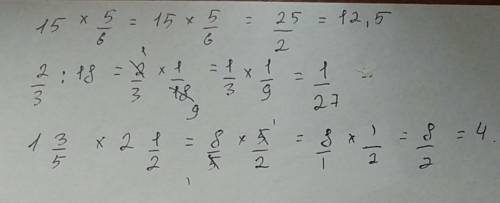 15 × 5/6 = 15 × 5/6 = 25/2 = 12,5
2/3 : 18 = 2/3 × 1/18 = 1/3 × 1/9 = 1/27
1 3/5 × 2 1/2 = 8/5 × 5/2 = 8/1 × 1/2 = 8/2 = 4.